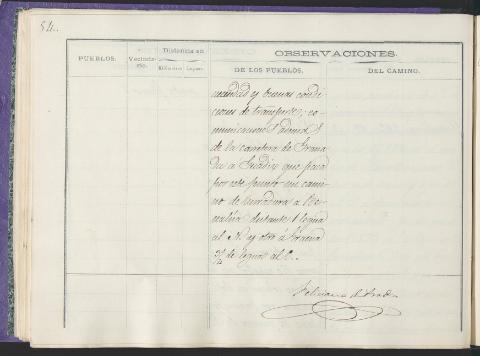 54.
PUEBLOS.
Vecinda-
rio.
Distancia en
Kilómetros
Leguas.
OBSERVACIONES.
DE LOS PUEBLOS.
DEL CAMINO.
y buenas condi
ciones de transporte; co-
municacion
de la carretera de Grana
da á Guadix que pasa
por este punto un cami-
no de herradura a Be-
nalúa distante 1 legua
al N. y otro á
3/4 de legua al E.
Feliciano